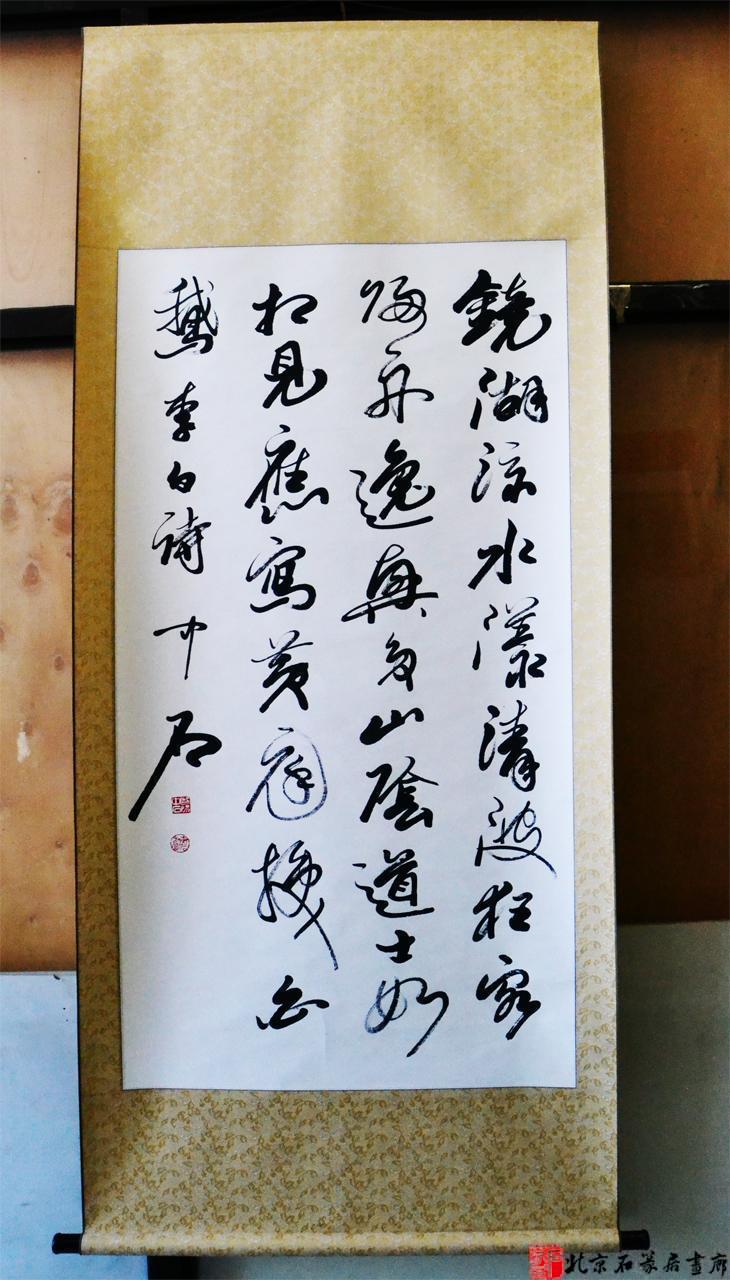 鏡湖流水漾清波狂客
歸舟逸興多山陰道士如
相見應寫黄庭換白
鵝李白詩中石
北京石篆居畫廊